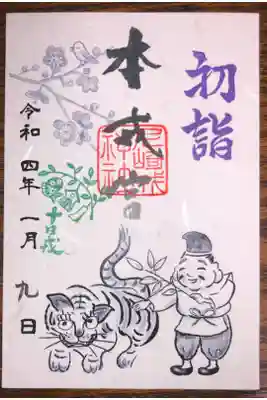 初詣
本戎宮
尼崎戎
神社
十日戎
令和四年一月九日